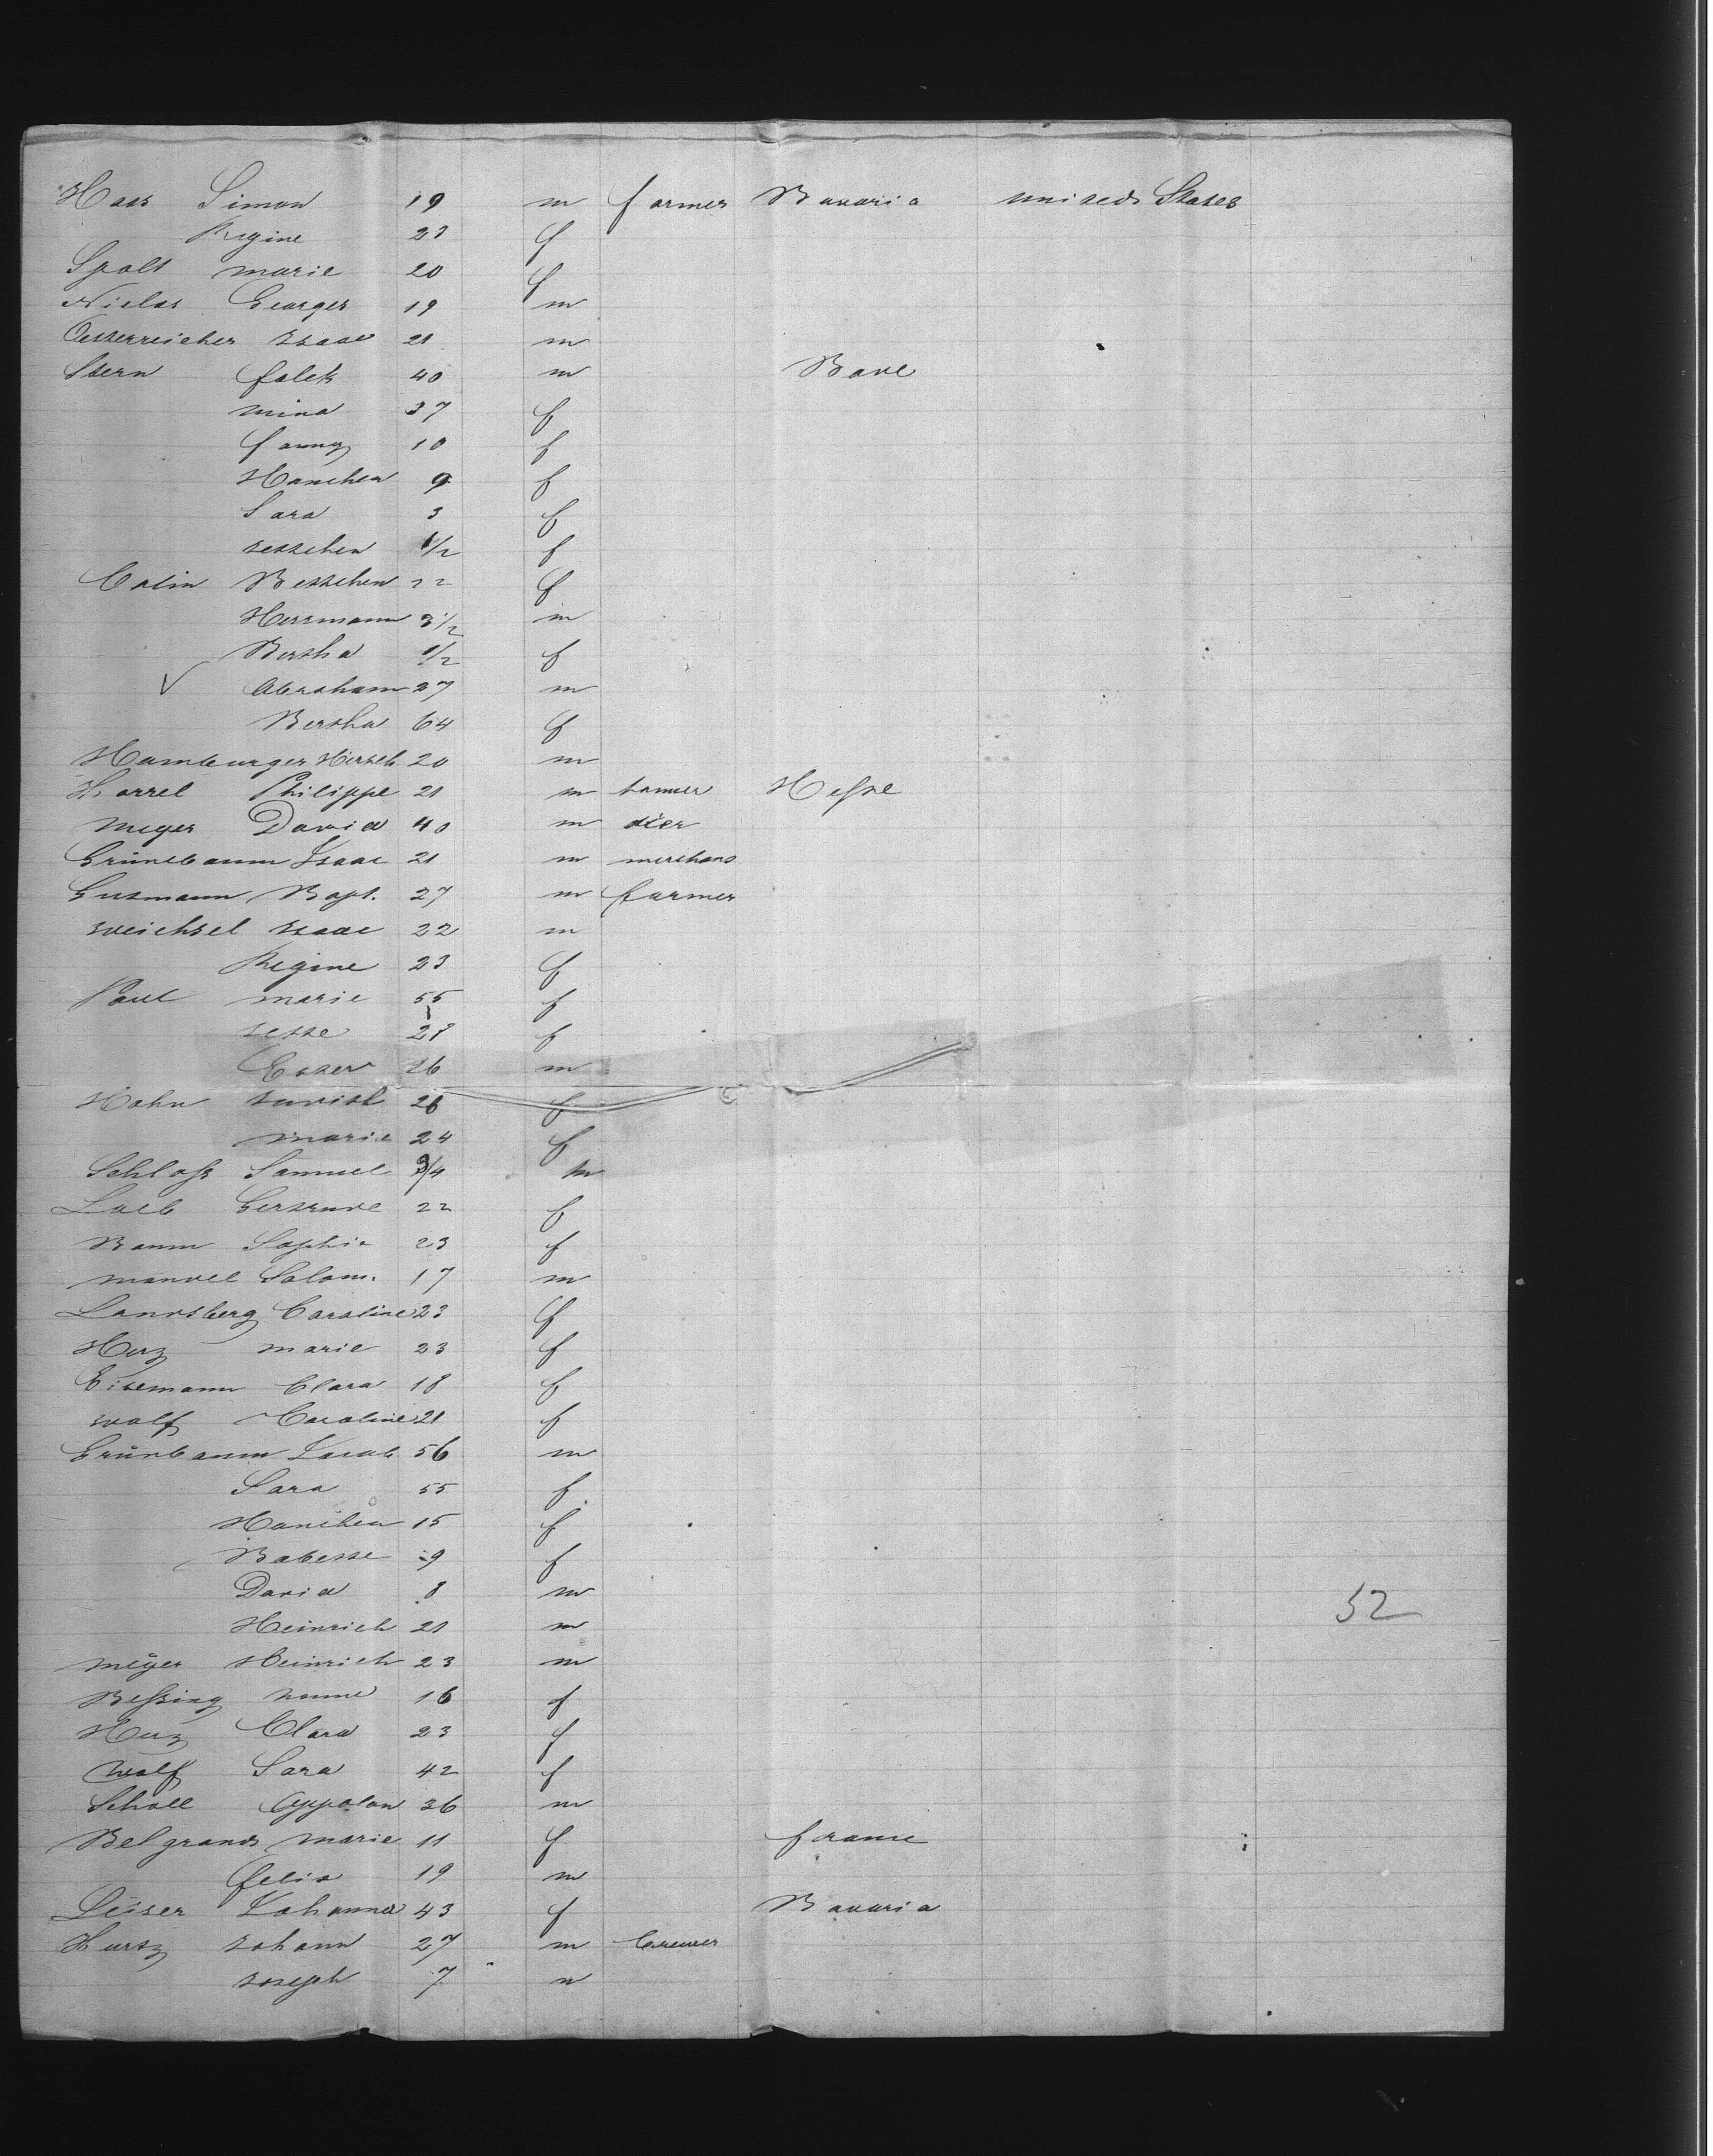 Haas Simon 19 m farmer Bavaria united States
Regine 23 f
Spalt marie 20 f
Niclas Georges 19 m
Oesterreicher Isaac 21 m
Stern falck 40 m Bade
mina 37 f
fanny 10 f
Hanchen 9 f
Sara 3 f
Jettchen 1/2 f
Colin Bettchen 22 f
Herrmann 3 1/2 m
Bertha 1/2 f
Abraham 27 m
Bertha 64 f
Hamburger Hirsch 20 m
Harrel Philippe 21 m tanner Hesse
meyer David 40 m dier
Grünebaum Isaac 21 m merchant
Gutmann Bapt. 27 m farmer
weichsel Isaac 22 m
Regine 23 f
Paul marie 55 f
Jette 28 f
26 m
Hahn Judith 26 f
marie 24 f
Schloss Samuel 3/4 m
Loeb Gertrude 22 f
Baum Sophie 23 f
mandel Salom. 17 m
Landsberg Caroline 23 f
Herz marie 23 f
Eisemann Clara 18 f
wolf Caroline 21 f
Grünbaum Jacob 56 m
Sara 55 f
Hanchen 15 f
Babette 9 f
David 8 m
Heinrich 21 m
52
meyer Heinrich 23 m
Bessing nanne 16 f
Herz Clara 23 f
wolf Sara 42 f
Scholl Appolon 36 m
Belgrand marie 11 f france
felix 19 m
Leiser Johanna 43 f Bavaria
Hurtz Johann 27 m brewer
Joseph 7 m